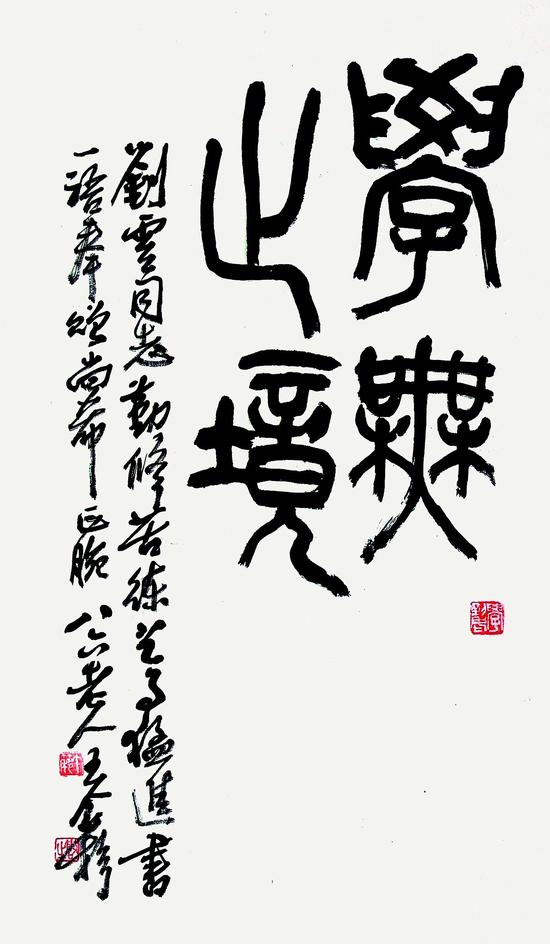 學無
止境
劉雲同志勤修苦練艺事猛進書
一語奉贈尚希正腕 八六老人王个簃